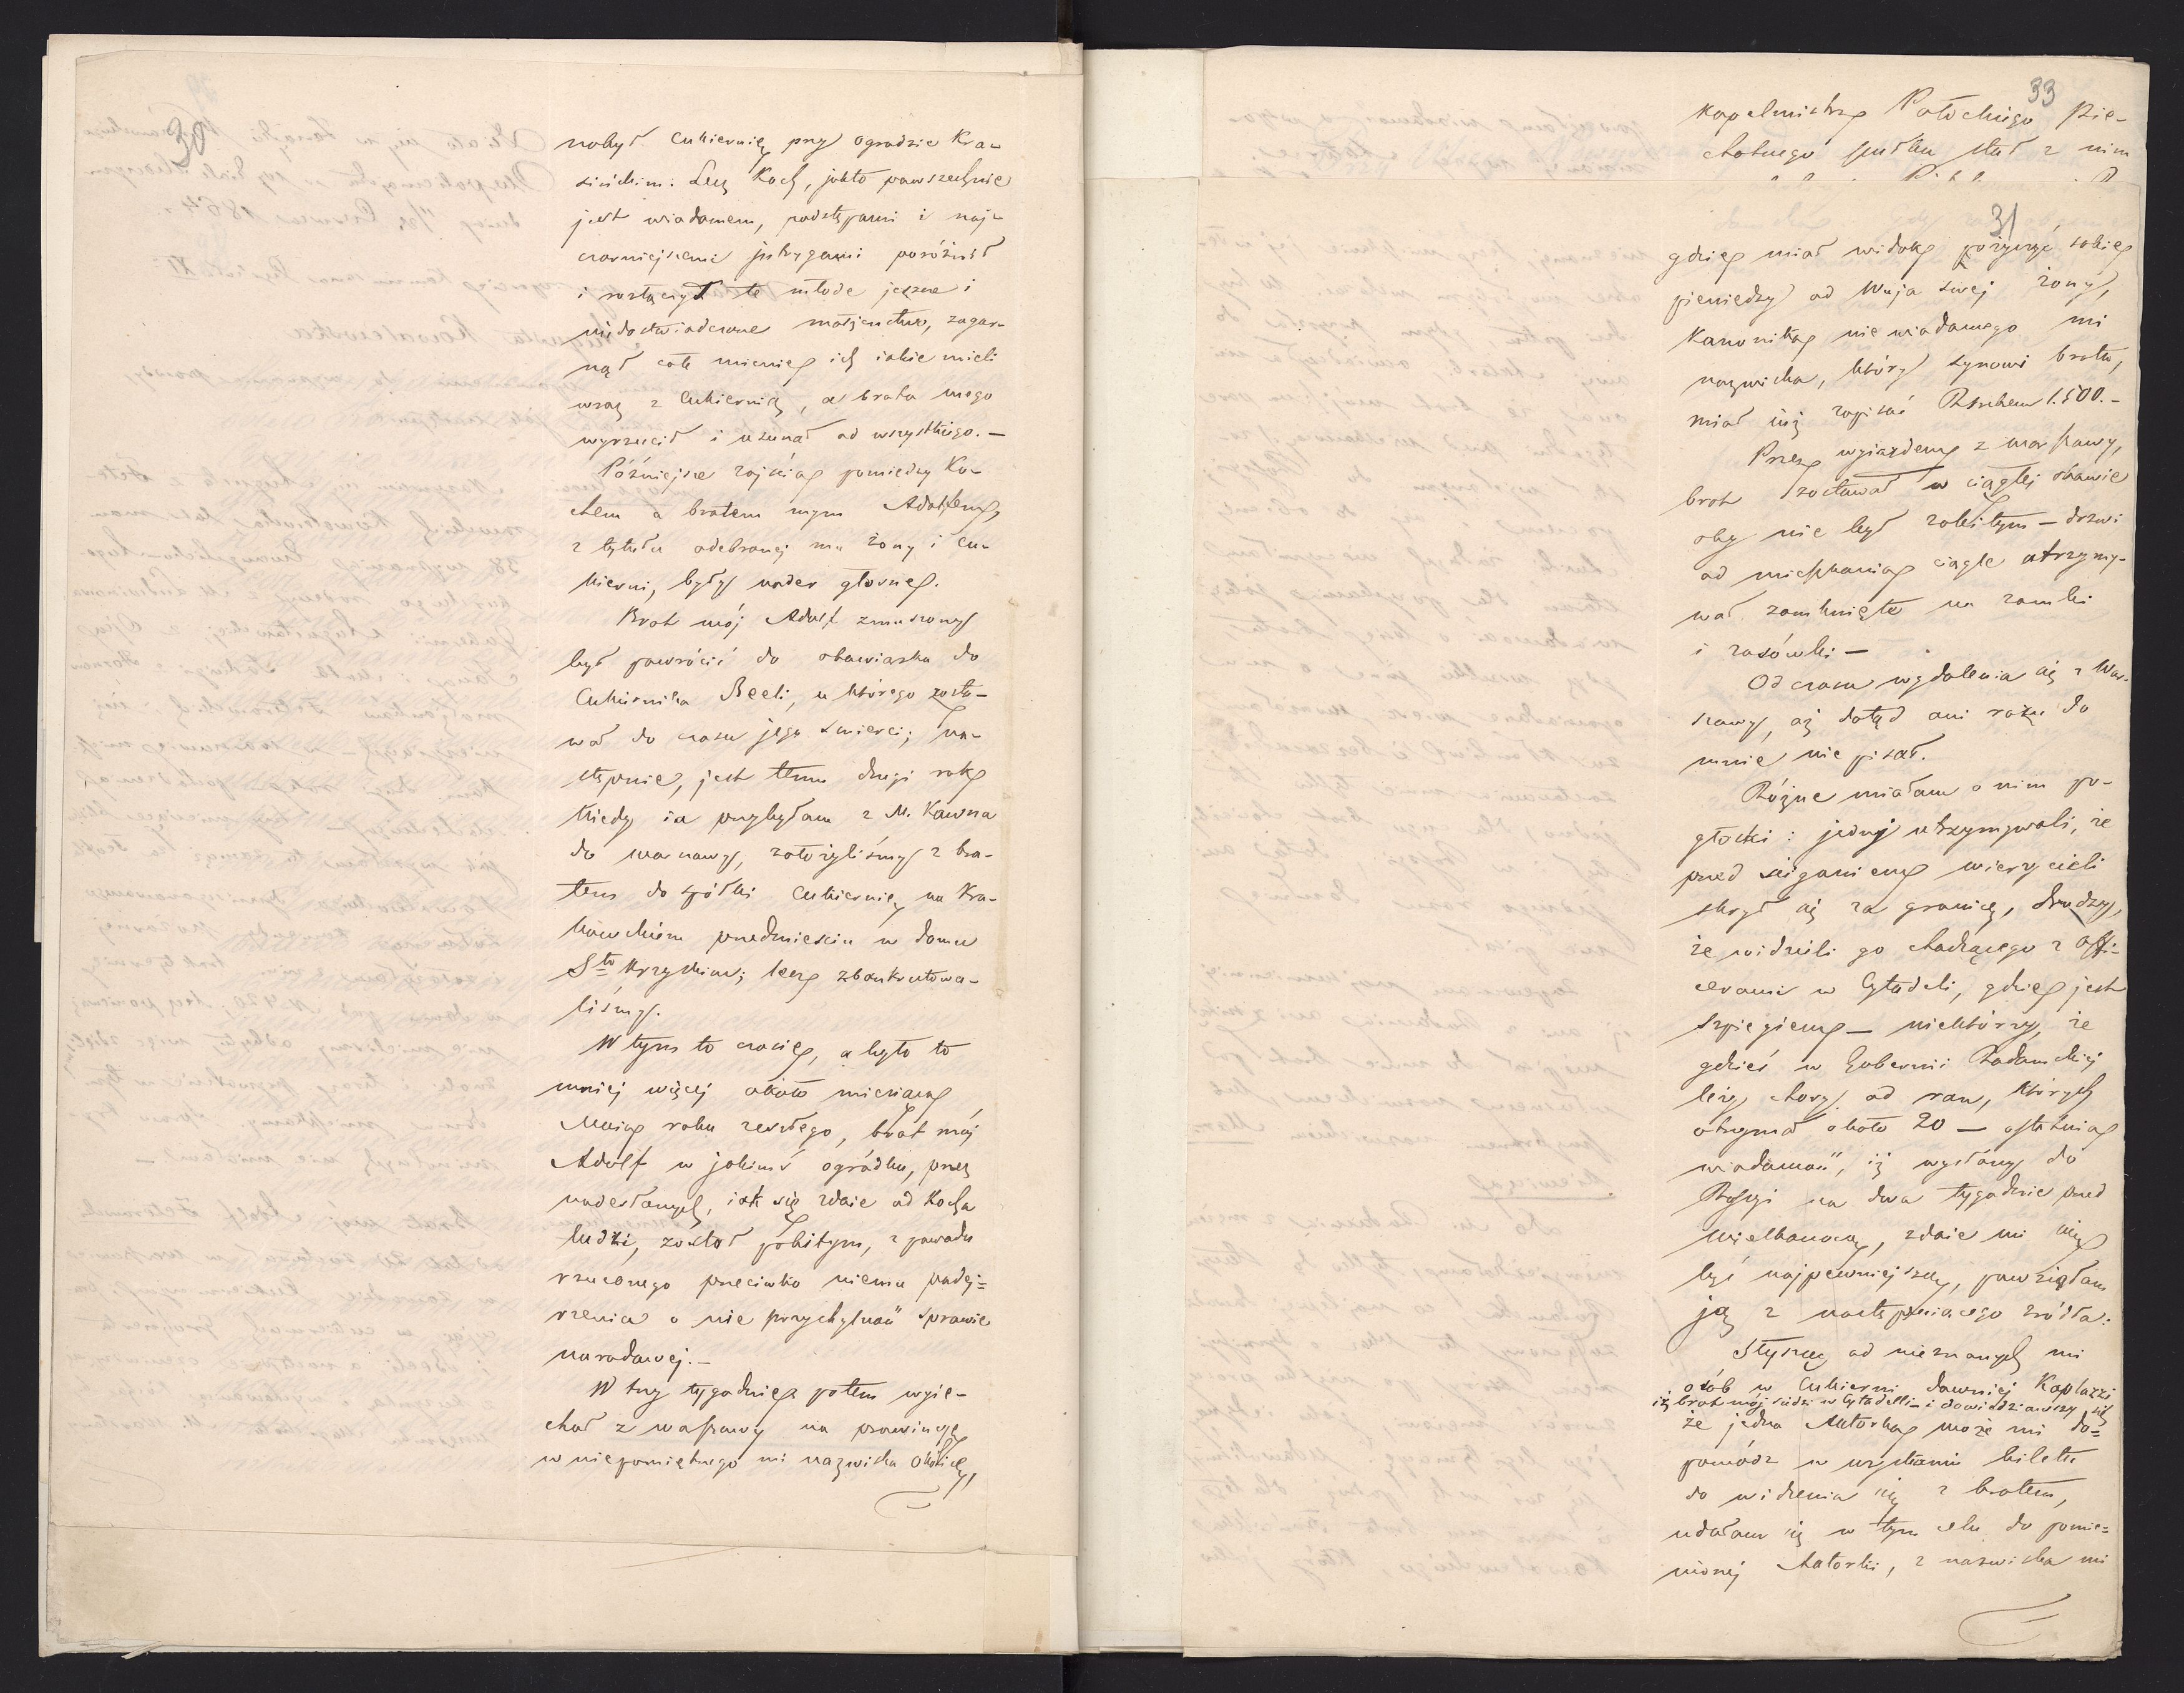 30
nabył Cukiernię przy ogrodzie Kra-
sińskim. Lecz Koch, jakto powszechnie
jest wiadomem, podstępami i naj-
czarniejszemi intrygami poróżnił
i rozłączył te młode jeszcze i
niedoświadczone małżeństwo, zagar-
nął całe mienie ich iakie mieli
wraz z Cukiernią, a brata mego
wyrzucił i usunął od wszystkiego. —
Późniejsze zajścia pomiędzy Ko-
chem a bratem mym Adolfem,
z tytułu odebranej mu żony i cu-
kierni, były nader głośne.
Brat mój Adolf zmuszony
był powrócić do obowiązku do
Cukiernika Beeli, u którego zosta-
wał do czasu jego śmierci; na-
stępnie, jest temu drugi rok
kiedy ia przybyłam z M. Kowna
do Warszawy, założyliśmy z bra-
tem do spółki Cukiernię na Kra-
kowskiem przedmieściu w domu
Sto Krzyskim; lecz zbankrutowa-
liśmy.
W tym to czasie, a było to
mniej więcej około miesiąca
Maja roku zeszłego, brat mój
Adolf w jakimś ogródku, przez
nadesłanych, iak się zdaie od Kocha
ludzi, został pobitym, z powodu
rzuconego przeciwko niemu podej=
rzenia o nie przychylność sprawie
narodowej. —
W trzy tygodnie potem wyje-
chał z Warszawy na prowincyę
w niepomiętnego mi nazwiska okolicę,
33
Kapelmistrz Połockiego Pie-
chotnego pułku stał z nim
31
gdzie miał widok pożyczyć sobie
pieniędzy od Wuja swej żony,
Kanonika nie wiadomego mi
nazwiska, który synowi brata,
miał iuż zapisać Rubli 1.500. —
Przed wyjazdem z Warszawy,
brat zostawał w ciągłej obawie
aby nie był zabitym — drzwi
od mieszkania ciągle utrzymy-
wał zamknięte na zamki
i zasówki —
Od czasu wydalenia się z War-
szawy, aż dotąd ani razu do
mnie nie pisał.
Różne miałam o nim po-
głoski: jedni utrzymywali, że
przed ściganiem wierzycieli
skrył się za granicę, drudzy,
że widzieli go chodzącego z offi-
cerami w Cytadeli, gdzie jest
szpiegiem — niektórzy, że
gdzieś w Gubernii Radomskiej
leży chory od ran, których
otrzymał około 20 — ostatnia
wiadomość, iż wysłany do
Rossyi na dwa tygodnie przed
Wielkanocą, zdaie mi się
być najpewniejszą, powziąłam
ją z następuiącego źródła:
Słysząc od nieznanych mi
osób w Cukierni dawniej Kaplazzi
iż brat mój siedzi w Cytadelli — i dowiedziawszy się
że jedna Aktorka może mi do=
pomódz w uzyskaniu biletu
do widzenia się z bratem,
udałam się w tym celu do pomie=
nionej Aktorki, z nazwiska mi